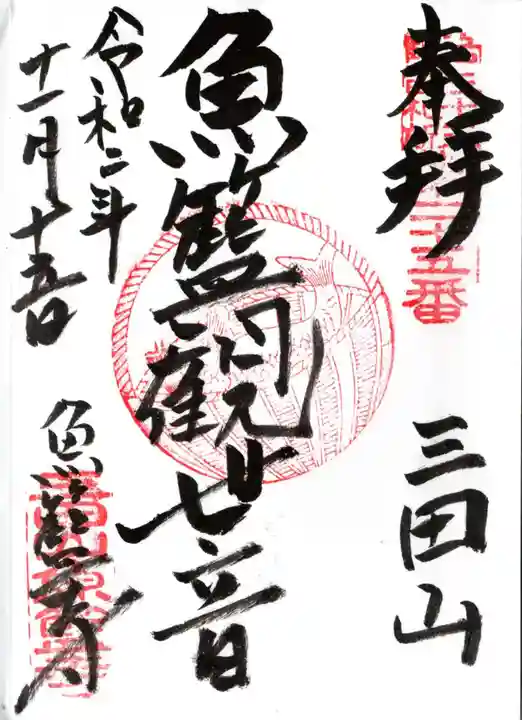 奉拝
三田山
五番
魚籃觀世音
令和二年
十一月十五日
魚籃寺